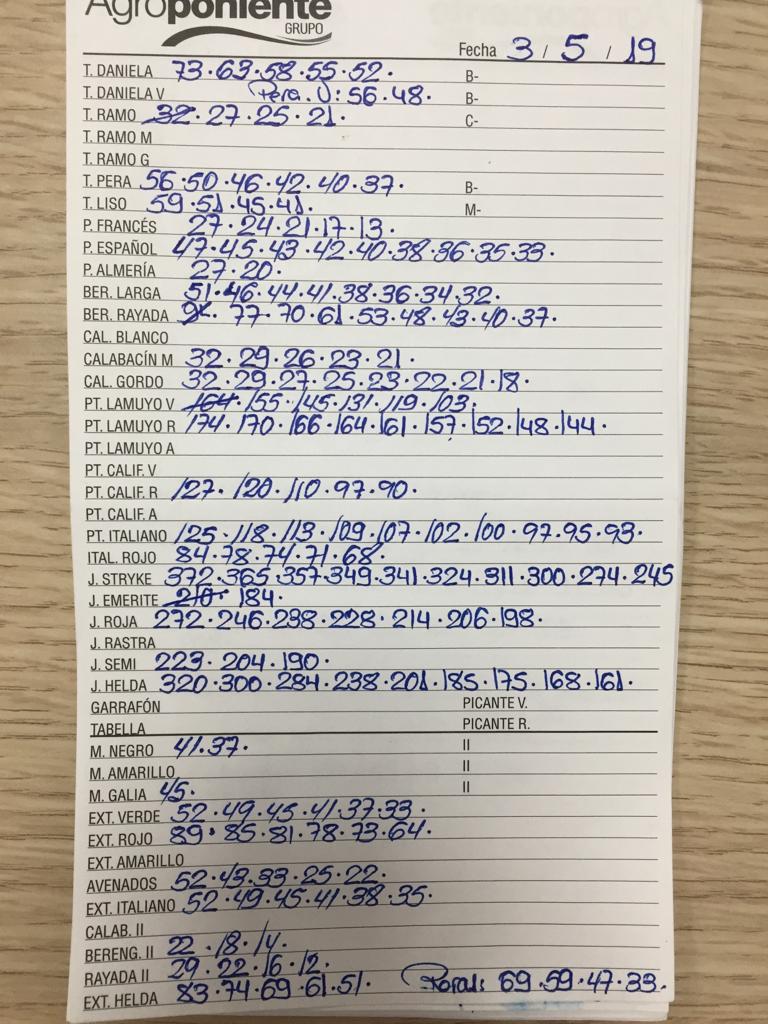 Agroponiente
GRUPO
Fecha 3 / 5 / 19
T. DANIELA 73·63·58·55·52· B-
T. DANIELA V Pera. V: 56·48· B-
T. RAMO 32·27·25·21· C-
T. RAMO M
T. RAMO G
T. PERA 56·50·46·42·40·37· B-
T. LISO 59·51·45·41· M-
P. FRANCÉS 27·24·21·17·13·
P. ESPAÑOL 47·45·43·42·40·38·36·35·33·
P. ALMERÍA 27·20·
BER. LARGA 51·46·44·41·38·36·34·32·
BER. RAYADA 77·70·61·53·48·43·40·37·
CAL. BLANCO
CALABACÍN M 32·29·26·23·21·
CAL. GORDO 32·29·27·25·23·22·21·18·
PT. LAMUYO V 164·155·145·131·119·103·
PT. LAMUYO R 174·170·166·164·161·157·152·148·144·
PT. LAMUYO A
PT. CALIF. V
PT. CALIF. R 127·120·110·97·90·
PT. CALIF. A
PT. ITALIANO 125·118·113·109·107·102·100·97·95·93·
ITAL. ROJO 84·78·74·71·68·
J. STRYKE 372·365·357·349·341·324·311·300·274·245
J. EMERITE 210·184·
J. ROJA 272·246·238·228·214·206·198·
J. RASTRA
J. SEMI 223·204·190·
J. HELDA 320·300·284·238·201·185·175·168·161·
GARRAFÓN PICANTE V.
TABELLA PICANTE R.
M. NEGRO 41·37· II
M. AMARILLO II
M. GALIA 45· II
EXT. VERDE 52·49·45·41·37·33·
EXT. ROJO 89·85·81·78·73·64·
EXT. AMARILLO
AVENADOS 52·43·33·25·22·
EXT. ITALIANO 52·49·45·41·38·35·
CALAB. II
BERENG. II 22·18·14·
RAYADA II 29·22·16·12·
EXT. HELDA 83·74·69·61·51· 69·59·47·33·